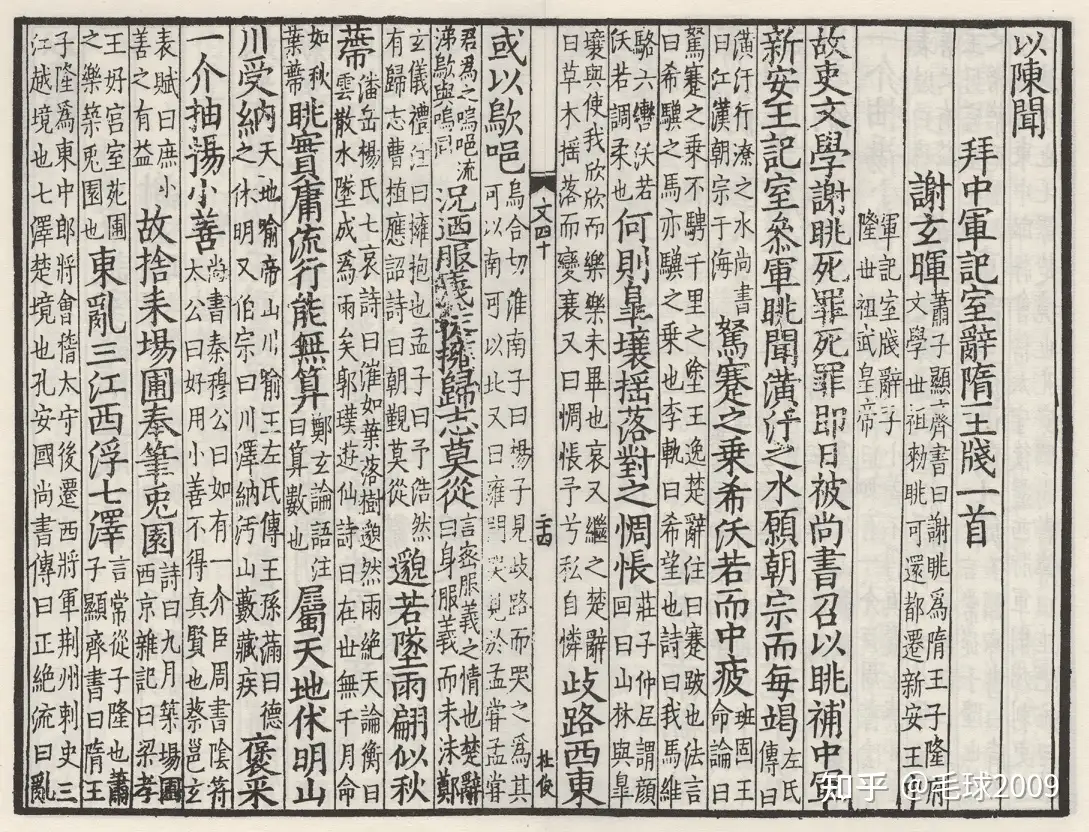 以陳聞
拜中軍記室辭隋王牋一首
謝玄暉 蕭子顯齊書曰謝朓爲隋王子隆府文學世祖勑朓可還都遷新安王中
軍記室牋辭子隆世祖武皇帝
故吏文學謝朓死罪死罪即日被尚書召以朓補中軍
新安王記室參軍朓聞潢汙之水願朝宗而每竭 左氏傳曰
潢汙行潦之水尚書曰江漢朝宗于海 駑蹇之乘希沃若而中疲 班固王命論曰
駑蹇之乘不騁千里之塗王逸楚辭注曰蹇跛也法言曰希驥之馬亦驥之乘也李軌曰希望也詩曰我馬維
駱六轡沃若沃若調柔也 何則臯壤揺落對之惆悵 莊子仲尼謂顏回曰山林與臯
壤與使我欣欣而樂樂未畢也哀又繼之楚辭曰草木揺落而變衰又曰惆悵予兮私自憐 歧路西東
文四十 二十四 杜俊
或以歍唈 烏合切淮南子曰楊子見歧路而哭之爲其可以南可以北又曰雍門哭見於孟甞
君君爲之嗚唈流涕歍與嗚同 況迺服義徒擁歸志莫從 言密服義之情也楚辭曰身服義而未沬鄭
玄儀禮注曰擁抱也孟子曰予浩然有歸志曹植應詔詩曰朝覲莫從 邈若墜雨翩似秋
蔕 潘岳楊氏七哀詩曰漼如葉落樹邈然雨絶天論衡曰雲散水墜成爲雨矣郭璞遊仙詩曰在世無千月命
如秋葉蔕 朓實庸流行能無筭 鄭玄論語注曰筭數也 屬天地休明山
川受納 天地喻帝山川喻王左氏傳王孫滿曰德之休明又伯宗曰川澤納汙山藪藏疾 襃采
一介抽揚小善 尚書秦穆公曰如有一介臣周書陰符太公曰好用小善不得真賢也蔡邕玄
表賦曰庶小善之有益 故捨耒場圃奉筆兎園 詩曰九月築場圃西京雜記曰梁孝
王好宫室苑囿之樂築兎園也 東亂三江西浮七澤 言常從子隆也蕭子顯齊書曰隋王
子隆爲東中郎將會稽太守後遷西將軍荆州刺史三江越境也七澤楚境也孔安國尚書傳曰正絶流曰亂
知乎 @毛球2009